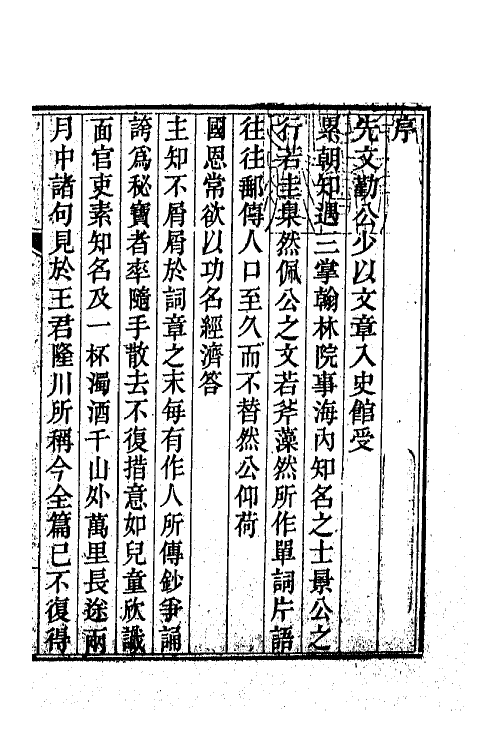 序
先文勤公少以文章入史館受
累朝知遇三掌翰林院事海內知名之士景公之
行若圭臬然佩公之文若斧藻然所作單詞片語
往往郵傳人口至久而不替然公仰荷
國恩常欲以功名經濟答
主知不屑屑於詞章之末每有作人所傳鈔爭誦
誇爲秘寶者率隨手散去不復措意如兒童欣識
面官吏素知名及一杯濁酒千山外萬里長途兩
月中諸句見於王君隆川所稱今全篇已不復得